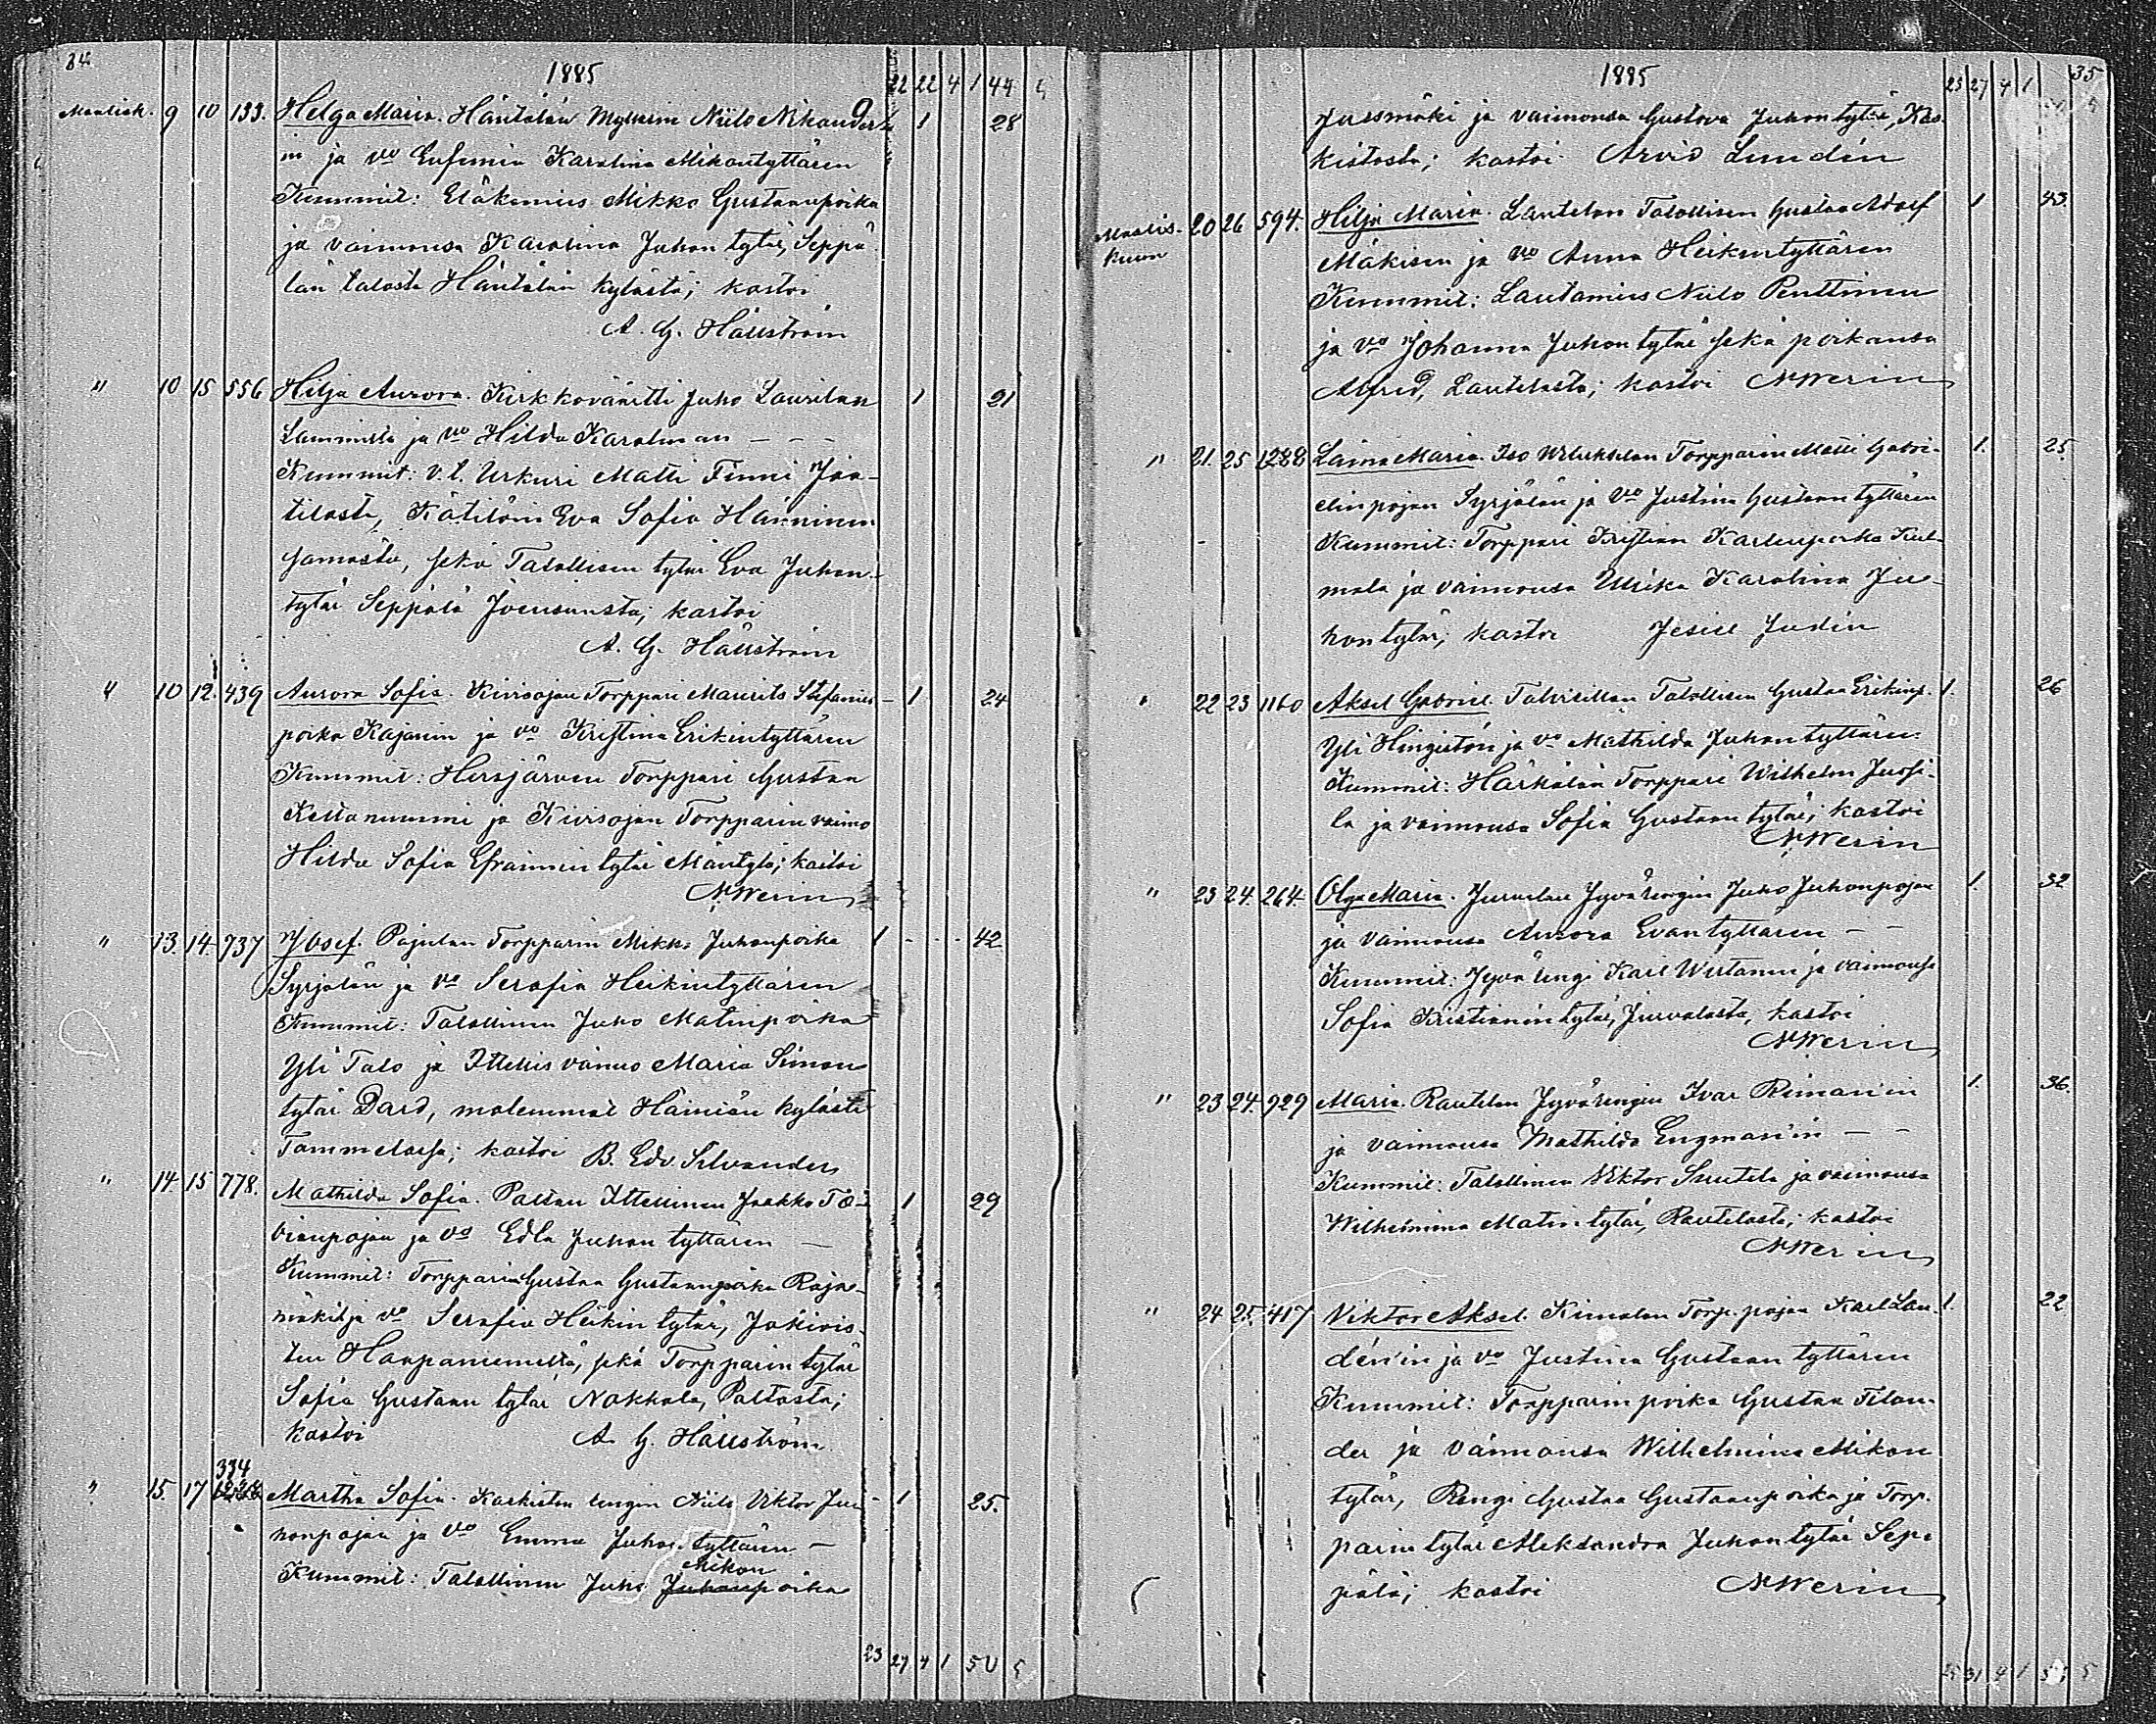 34
1885
22 22 4 1 44 5
Maalisk. 9 10 133. Helga Maria. Häntälän Myllärin Niilo Nikander- 1 28
in ja vo Eufemia Karolina Mikontyttären
Kummit: Eläkemies Mikko Gustaanpoika
ja vaimonsa Karolina Juhon tytär, Seppä-
län talosta Häntälän kylästä; kastoi
A. G. Hällström
" 10 15 556 Hilja Aurora. Kirkkoväärtti Juho Laurilan 1 21
Lammilla ja vo Hilda Karolinan - - -
Kummit: v. t. Urkuri Matti Finni Jaa-
tilasta, Kätilöin Eva Sofia Hänninen
samasta, sekä Talollisen tytär Eva Juhon-
tytär Seppälä Joensuusta; kastoi
A. G. Hällström
" 10 12. 439 Aurora Sofia. Kiirisojan Torppari Maurits Stefanin- 1 24
poika Kajanin ja vo Kristina Erikintyttären
Kummit: Hirsjärven Torppari Gustaa
Keltanummi ja Kiirsojan Torpparin vaimo
Hilda Sofia Efraimin tytär Mäntylä; kastoi
N Werin
" 13. 14. 737 Josef. Pajulan Torpparin Mikko Juhonpoika 1 - - - 42
Syrjälän ja vo Serafia Heikintyttären
Kummit: Talollinen Juho Matinpoika
Yli Talo ja Ittellis vaimo Maria Simon
tytär Dard, molemmat Häiniän kylästä
Tammelassa; kastoi B. Edv. Silvander
" 14. 15 778. Mathilda Sofia. Paltan Ittellinen Jaakko To- 1 29
vianpojan ja vo Edla Juhon tyttären -
Kummit: Torpparin Gustaa Gustaanpoika Raja-
mäki ja vo Serafia Heikin tytär, Jokivis-
ten Haapaniemeltä, sekä Torpparin tytär
Sofia Gustaan tytär Nokkala, Paltasta;
kastoi A. G. Hällström
334
" 15. 17 Martha Sofia. Karkiston rengin Niilo Viktor Ju- 1 25.
honpojan ja vo Emma Juhon tyttären -
Mikon
Kummit: Talollinen Juho Juhonpoika
23 27 4 1 50 5
1885
35
25 27 4 1 5
Jussmäki ja vaimonsa Gustava Juhon tytär, Kar-
kistosta; kastoi Arvid Lundén
Maalis-
kuun 20 26 594. Hilja Maria. Lautelan Talollisen Gustaa Adolf 1 43.
Mäkisen ja vo Anna Heikintyttären
Kummit: Lautamies Niilo Penttinen
ja vo Johanna Juhon tytär sekä poikansa
Alfred, Lautelasta; kastoi N Werin
" 21. 25 1288 Laina Maria. Iso Torpparin Matti Gabri- 1. 25.
elinpojan Syrjälän ja vo Justina Gustaan tyttären
Kummit: Torppari Kristian Karlenpoika Kul-
mala ja vaimonsa Ulrika Karolina Ju-
hon tytär; kastoi Jesiel Judin
" 22 23 1160 Aksel Gabriel. Talvisillan Talollisen Gustaa Erikinp. 1. 26
Yli Hingistön ja vo Mathilda Juhon tyttären:
Kummit: Härkälän Torppari Wilhelm Jussi-
la ja vaimonsa Sofia Gustaan tytär; kastoi
N Werin
" 23 24. 264. Olga Maria. Jurvalan Jyvärengin Juho Juhonpojan 1. 32
ja vaimonsa Aurora Evantyttären - -
Kummit: Jyvä rengi Karl Wirtanen ja vaimonsa
Sofia Kristianin tytär, Jurvalasta, kastoi
N Werin
" 23 24. 929 Maria. Rautelan Jyvärengin Ivar Riman'in 1. 36.
ja vaimonsa Mathilda Engman'in - -
Kummit: Talollinen Viktor Suutela ja vaimonsa
Wilhelmina Matin tytär, Rautelasta; kastoi
N Werin
" 24 25. 417 Viktor Aksel. Kimalan Torp. pojan Karl Lau- 1. 22
dén'in ja vo Justina Gustaan tyttären
Kummit: Torpparin poika Gustaa Filan-
der ja vaimonsa Wilhelmina Mikon
tytär, Rengi Gustaa Gustaanpoika ja Torp-
parin tytär Aleksandra Juhon tytär Sep-
pälä; kastoi N Werin
25 31 4 1 55 5